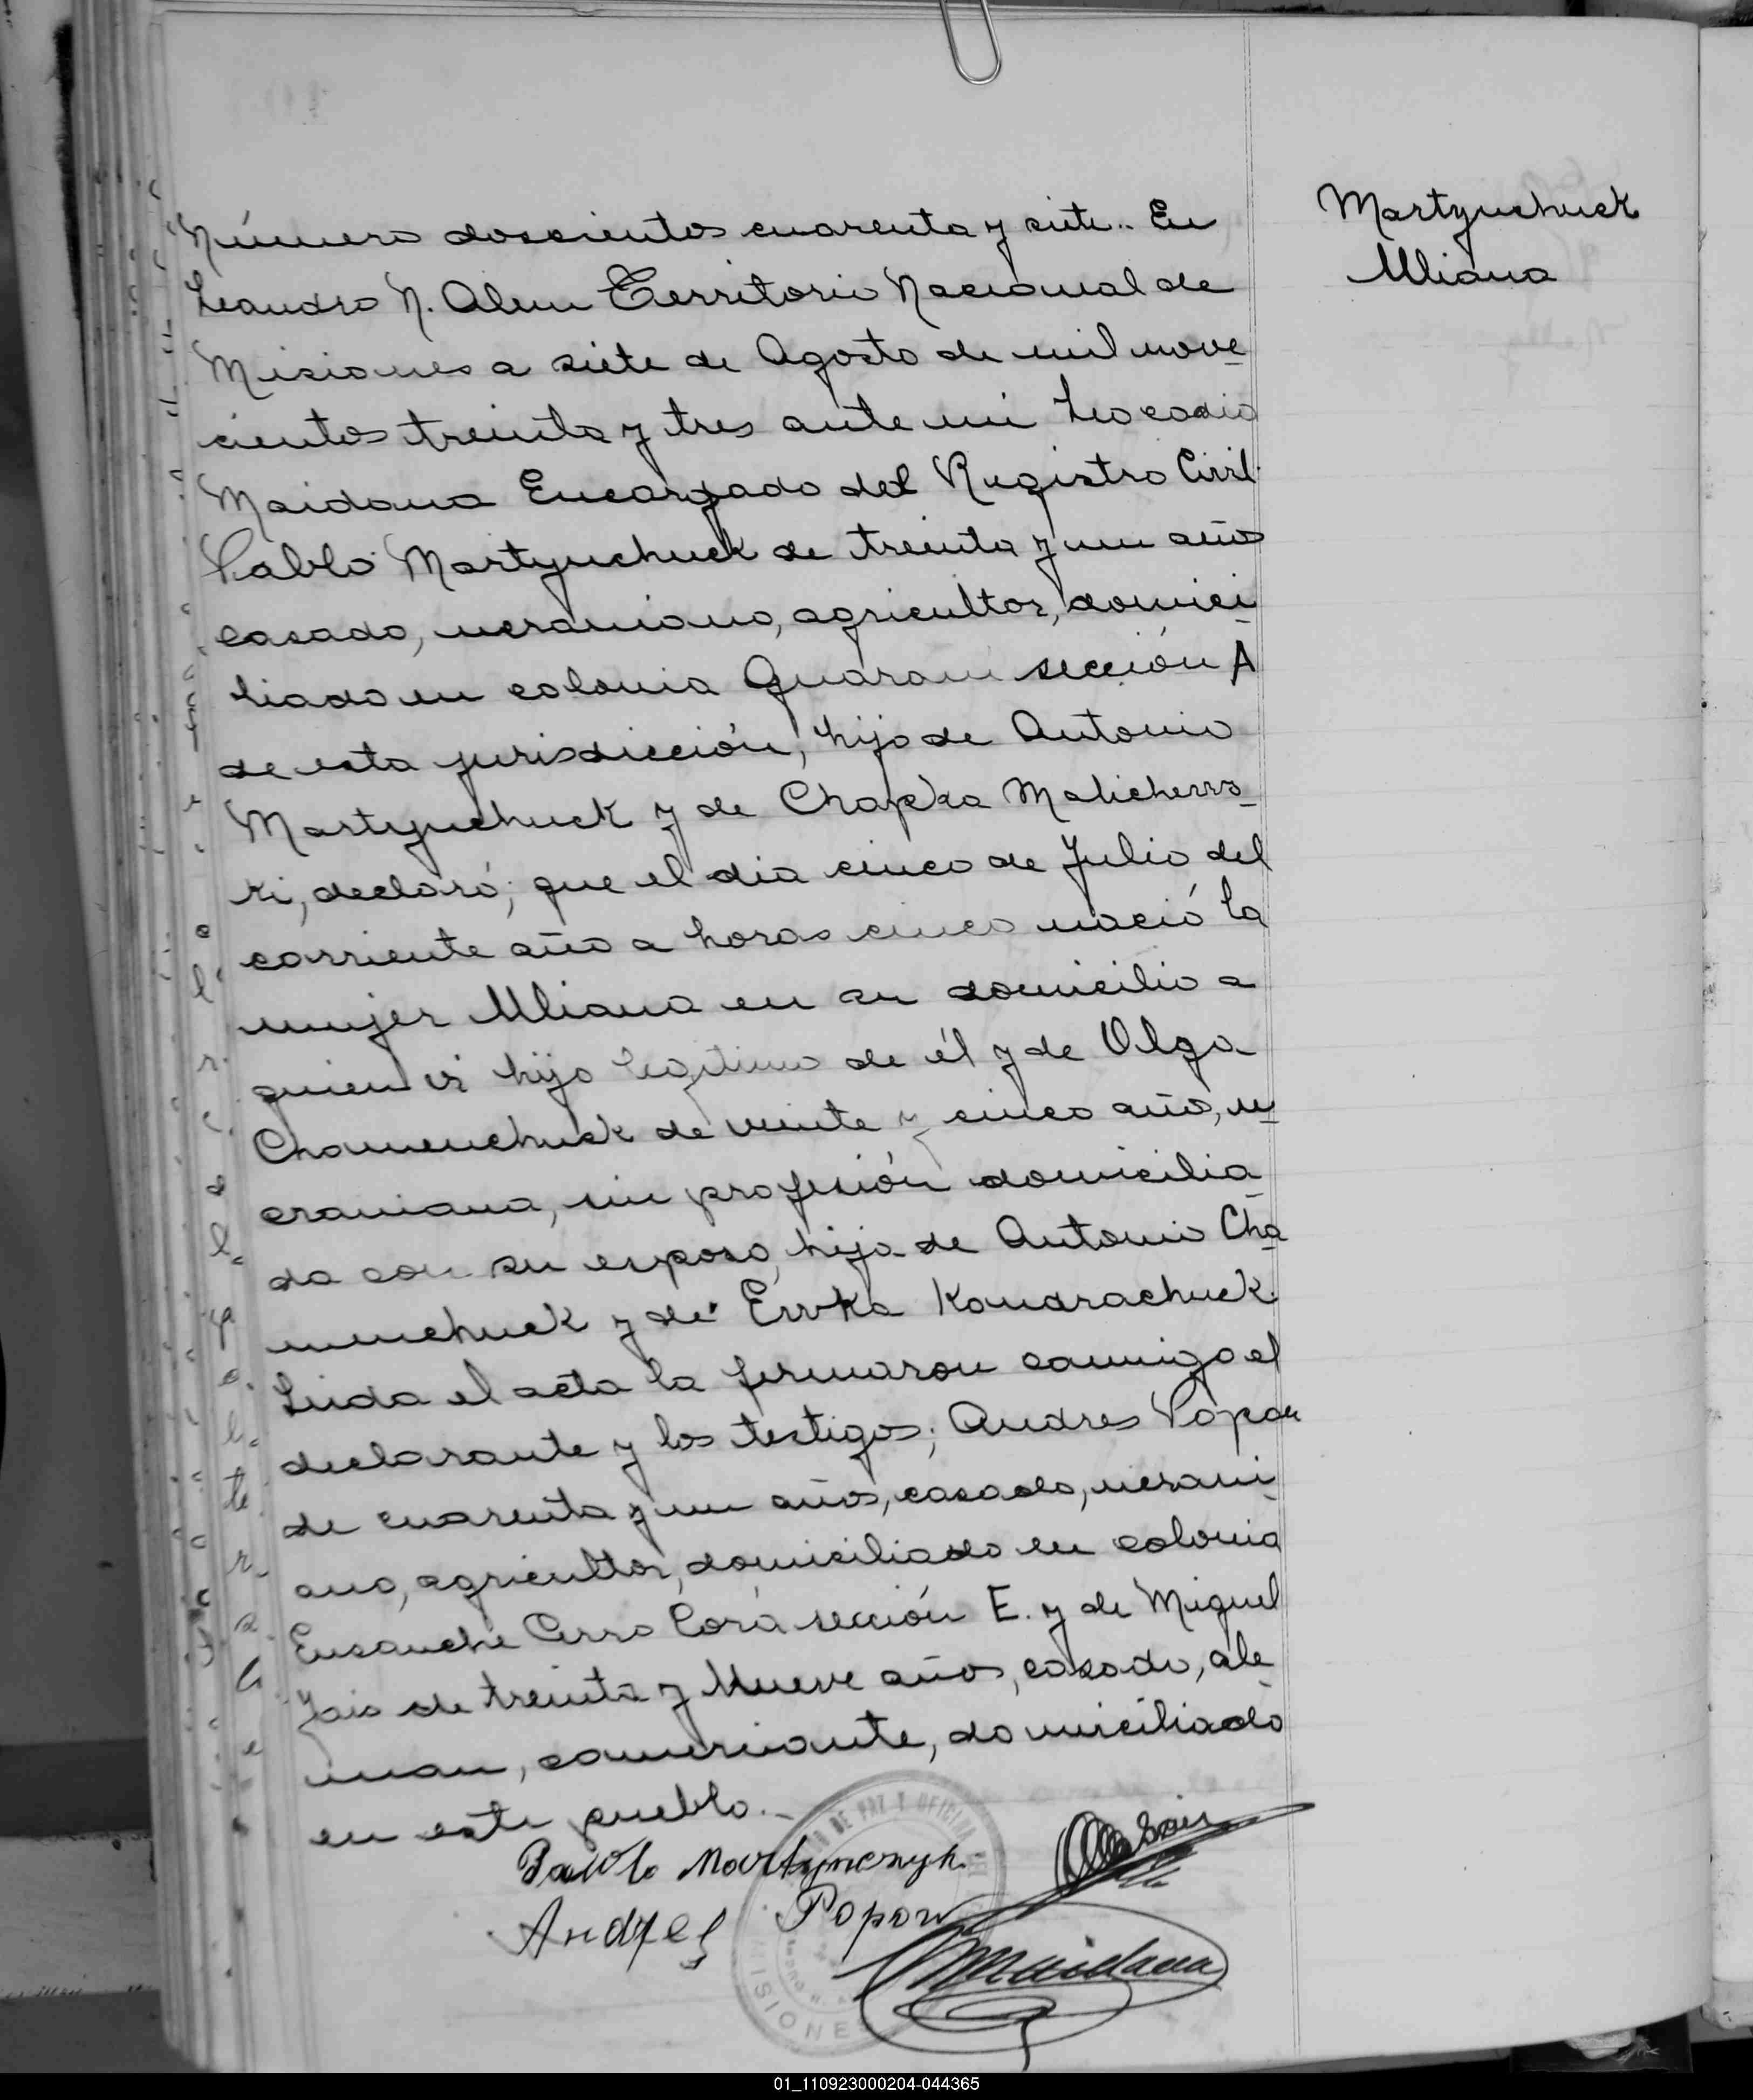 Martynchuck
Uliana
Número doscientos cuarenta y siete.. En
Leandro N. Alem Territorio Nacional de
Misiones a siete de Agosto de mil nove
cientos treinta y tres ante mi Leocadio
Maidana Encargado del Registro Civil
Pablo Martynchuck de treinta y un años
casado, ucraniano, agricultor, domici
liado en colonia Guarani sección A
de esta jurisdicción, hijo de Antonio
Martynchuck y de Chapka Malicherrs
ki, declaró; que el dia cinco de Julio del
corriente año a horas cinco nació la
mujer Uliana en su domicilio a
quien es hijo legitimo de él y de Olga
Chamenchuck de veinte y cinco años, u
craniana, sin profesión domicilia
da con su esposo, hija de Antonio Cha
menchuck y de Errka Kondrachuck
Leida el acta la firmaron conmigo el
declarante y los testigos; Andres Popow
de cuarenta y un años, casado, ucrani
ano, agricultor, domiciliado en colonia
Ensanche Cerro Corá sección E. y de Miguel
de treinta y Nueve años, casado, ale
man, comerciante, domiciliado
en este pueblo.
Pawlo Martynczyk
Andres Popow
Maidana
DE PAZ Y OFICINA
MISIONES
01_110923000204-044365